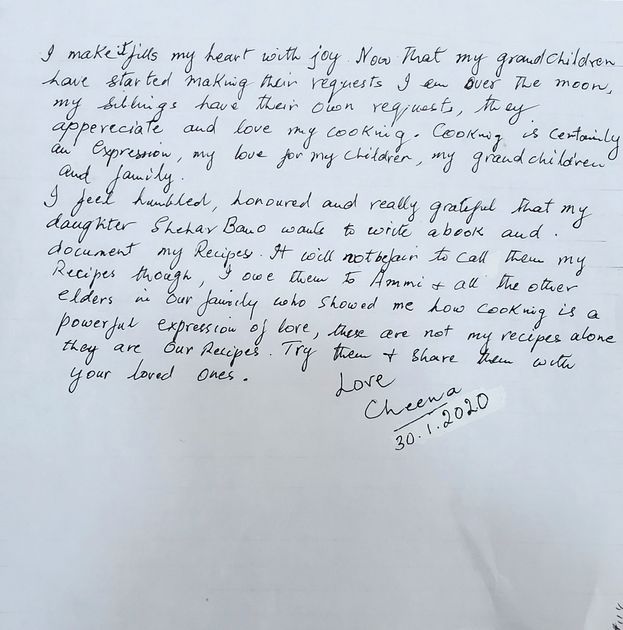 I make it fills my heart with joy. Now That my grandchildren
have started making their requests I am over The moon,
my siblings have their own requests, they
appereciate and love my cooking. Cooking is certainly
an Expression, my love for my children, my grandchildren
and family.
I feel humbled, honoured and really grateful that my
daughter Shehar Bano wants to write a book and.
document my Recipes. It will not be fair to call them my
Recipes though, I owe them to Ammi + all the other
elders in our family who showed me how cooking is a
powerful expression of love, these are not my recipes alone
they are Our Recipes. Try them + share them with
your loved ones.
Love
Cheena
30.1.2020